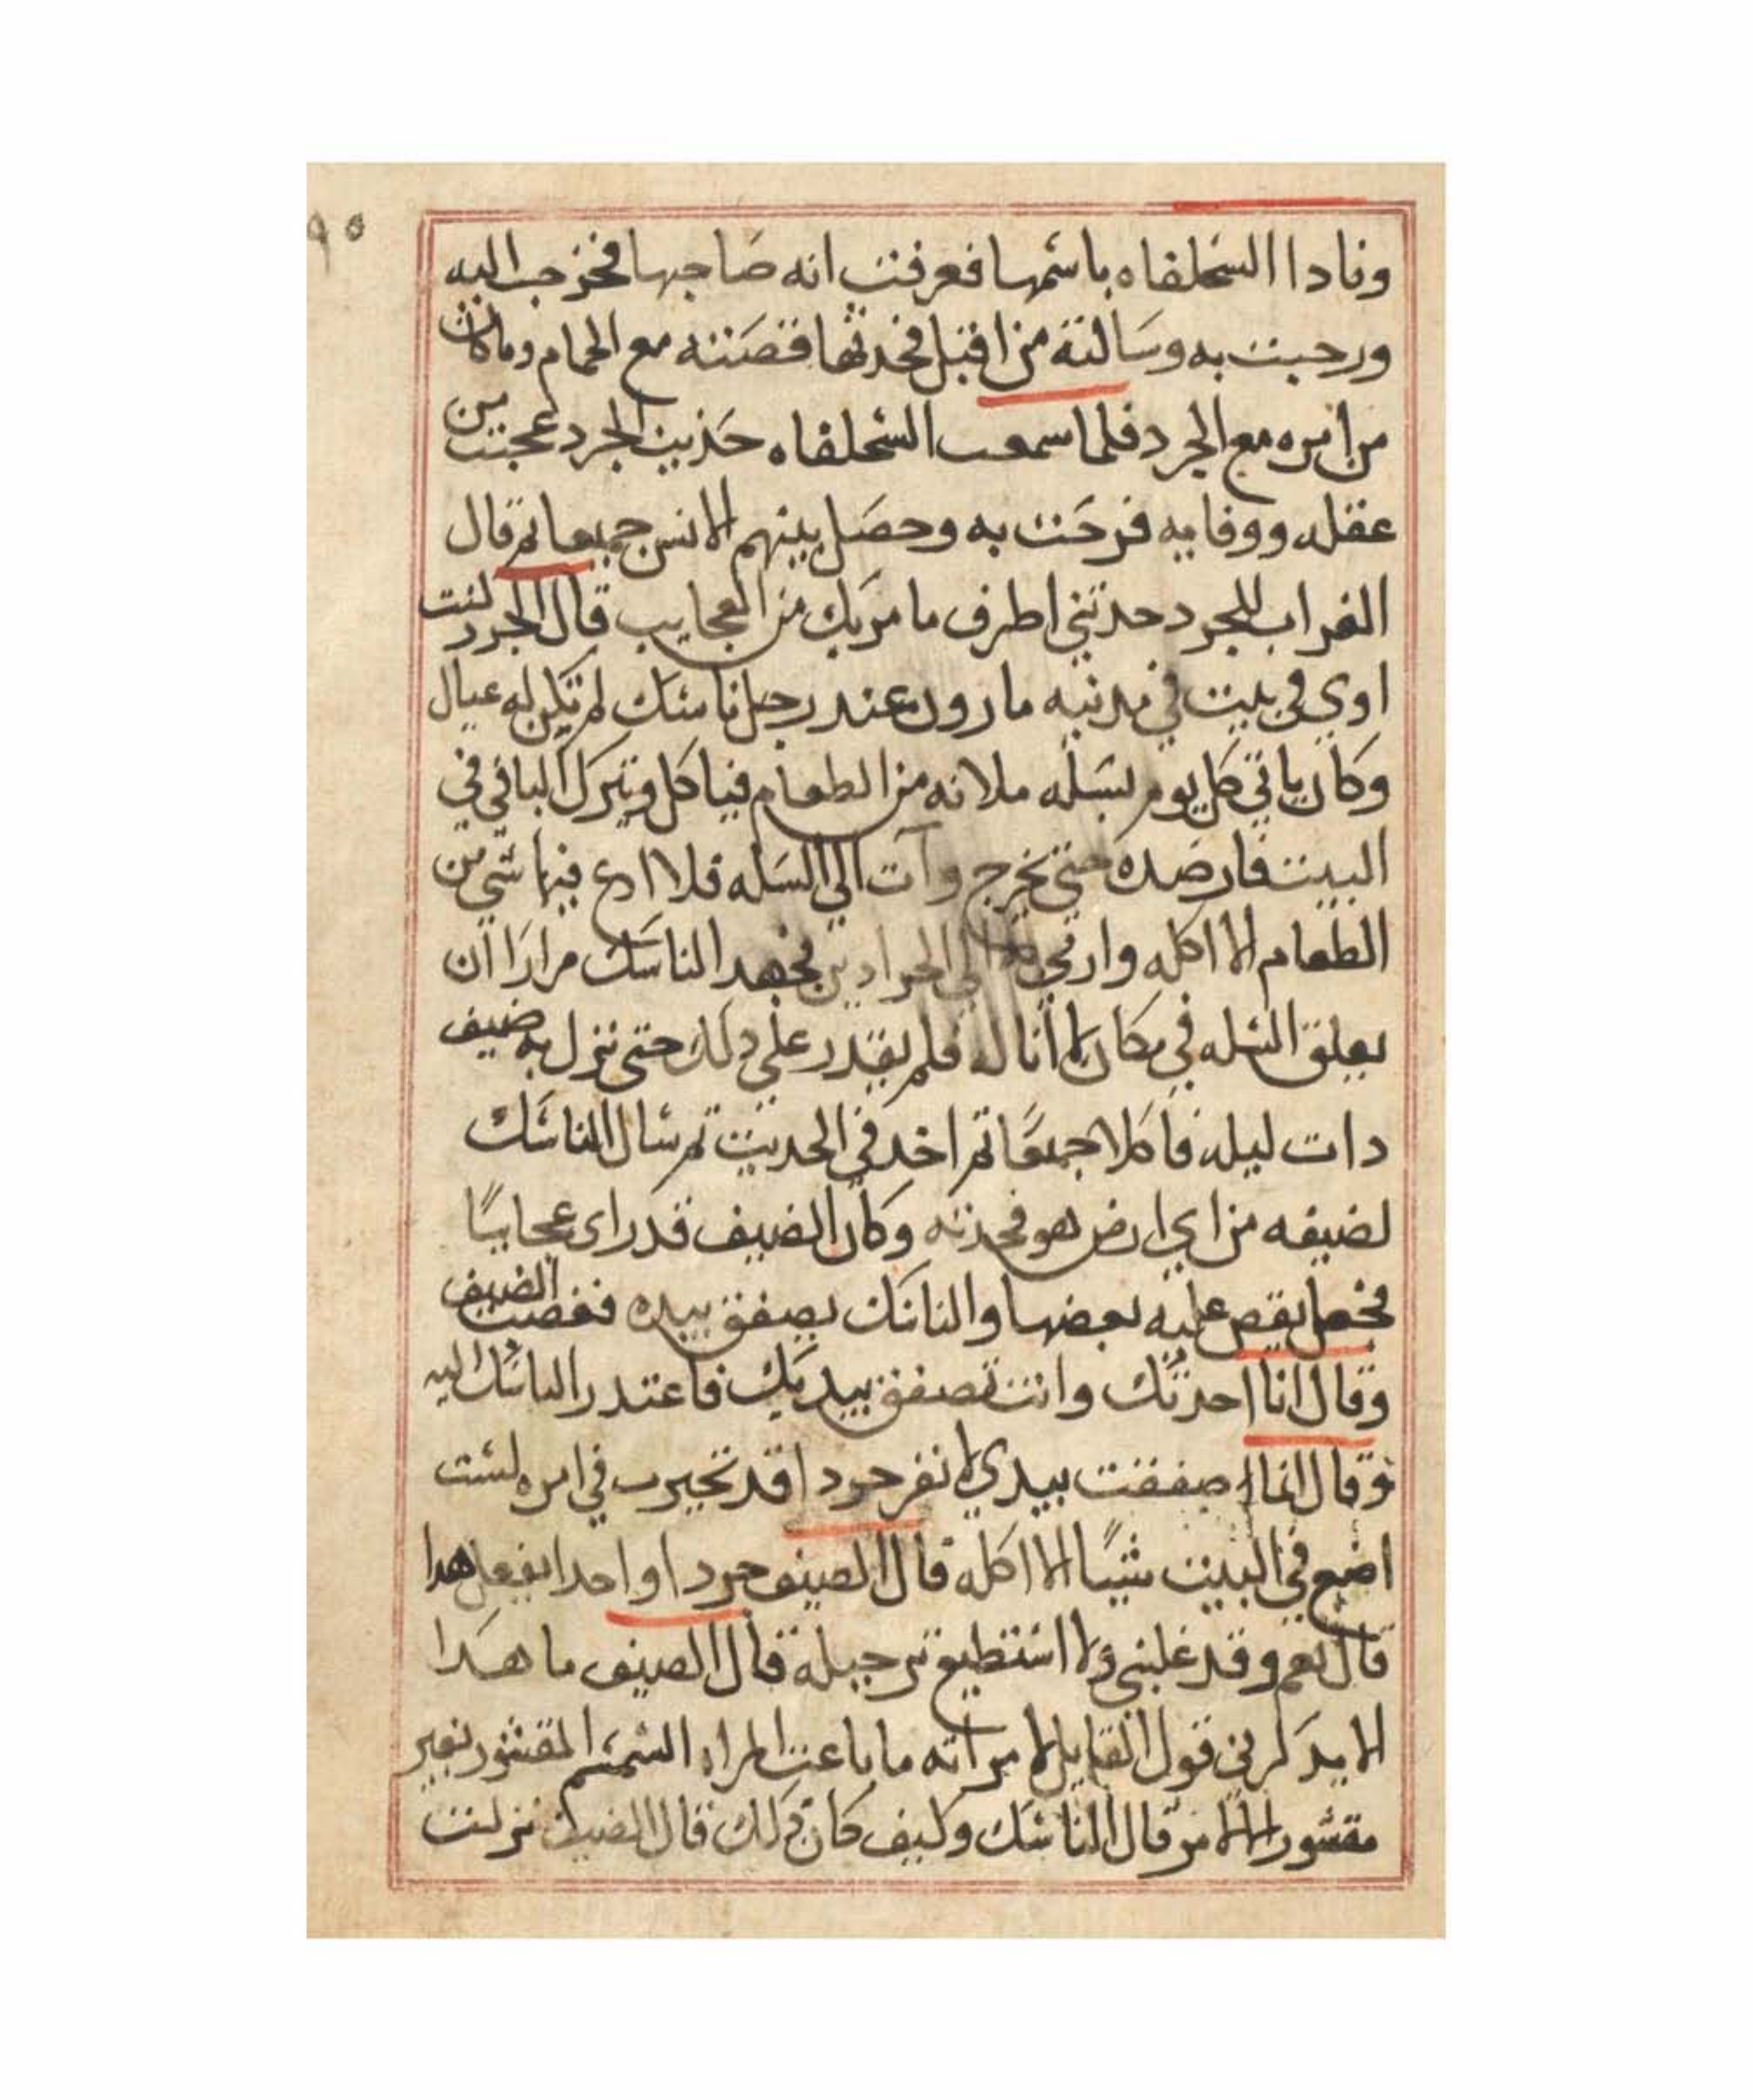 ٩٥
ونادا السحلفاه باسمها فعرفت انه صاحبها فخرجت اليه
ورحبت به وسالته من اقبل فحدثها قصته مع الحمام وما كان
من امره مع الجرد فلما سمعت السحلفاه حديث الجرد عجبت من
عقله ووفايه فرحت به وحصل بينهم الانس جميعا ثم قال
الغراب للجرد حدثني اطرف ما مر بك من العجايب قال الجرد كنت
اوي في بيت في مدينه مارون عند رجل ناسك لم تكن له عيال
وكان ياتي كل يوم بسله ملانه من الطعام فياكل ويترك الباقي في
البيت فارصده حتى يخرج وآت الي السله فلا ادع فيها شي من
الطعام الا اكله وارمي الي الجرادين فجهد الناسك مرارا ان
يعلق السله في مكان لا أناله فلم يقدر علي دلك حتى نزل به ضيف
دات ليله فاكلا جميعًا ثم اخد في الحديث ثم سال الناسك
لضيفه من اي ارض هو فحدثه وكان الضيف قد راى عجايبًا
فجعل يقص عليه بعضها والناسك يصفق بيده فغضب الضيف
وقال انا احدثك وانت تصفق بيديك فاعتدر الناسك اليه
وقال انما صفقت بيدي لانفر جردا قد تحيرت في امره لست
اضع في البيت شيًا الا اكله قال الضيف جردا واحدا يفعل هدا
قال نعم وقد غلبني ولا استطيع له حيله قال الضيف ما هدا
الا يدكرني قول القايل لامراته ما باعت المراه السمسم المقشور بغير
مقشور الا لامر قال الناسك وكيف كان دلك قال الضيف نزلت